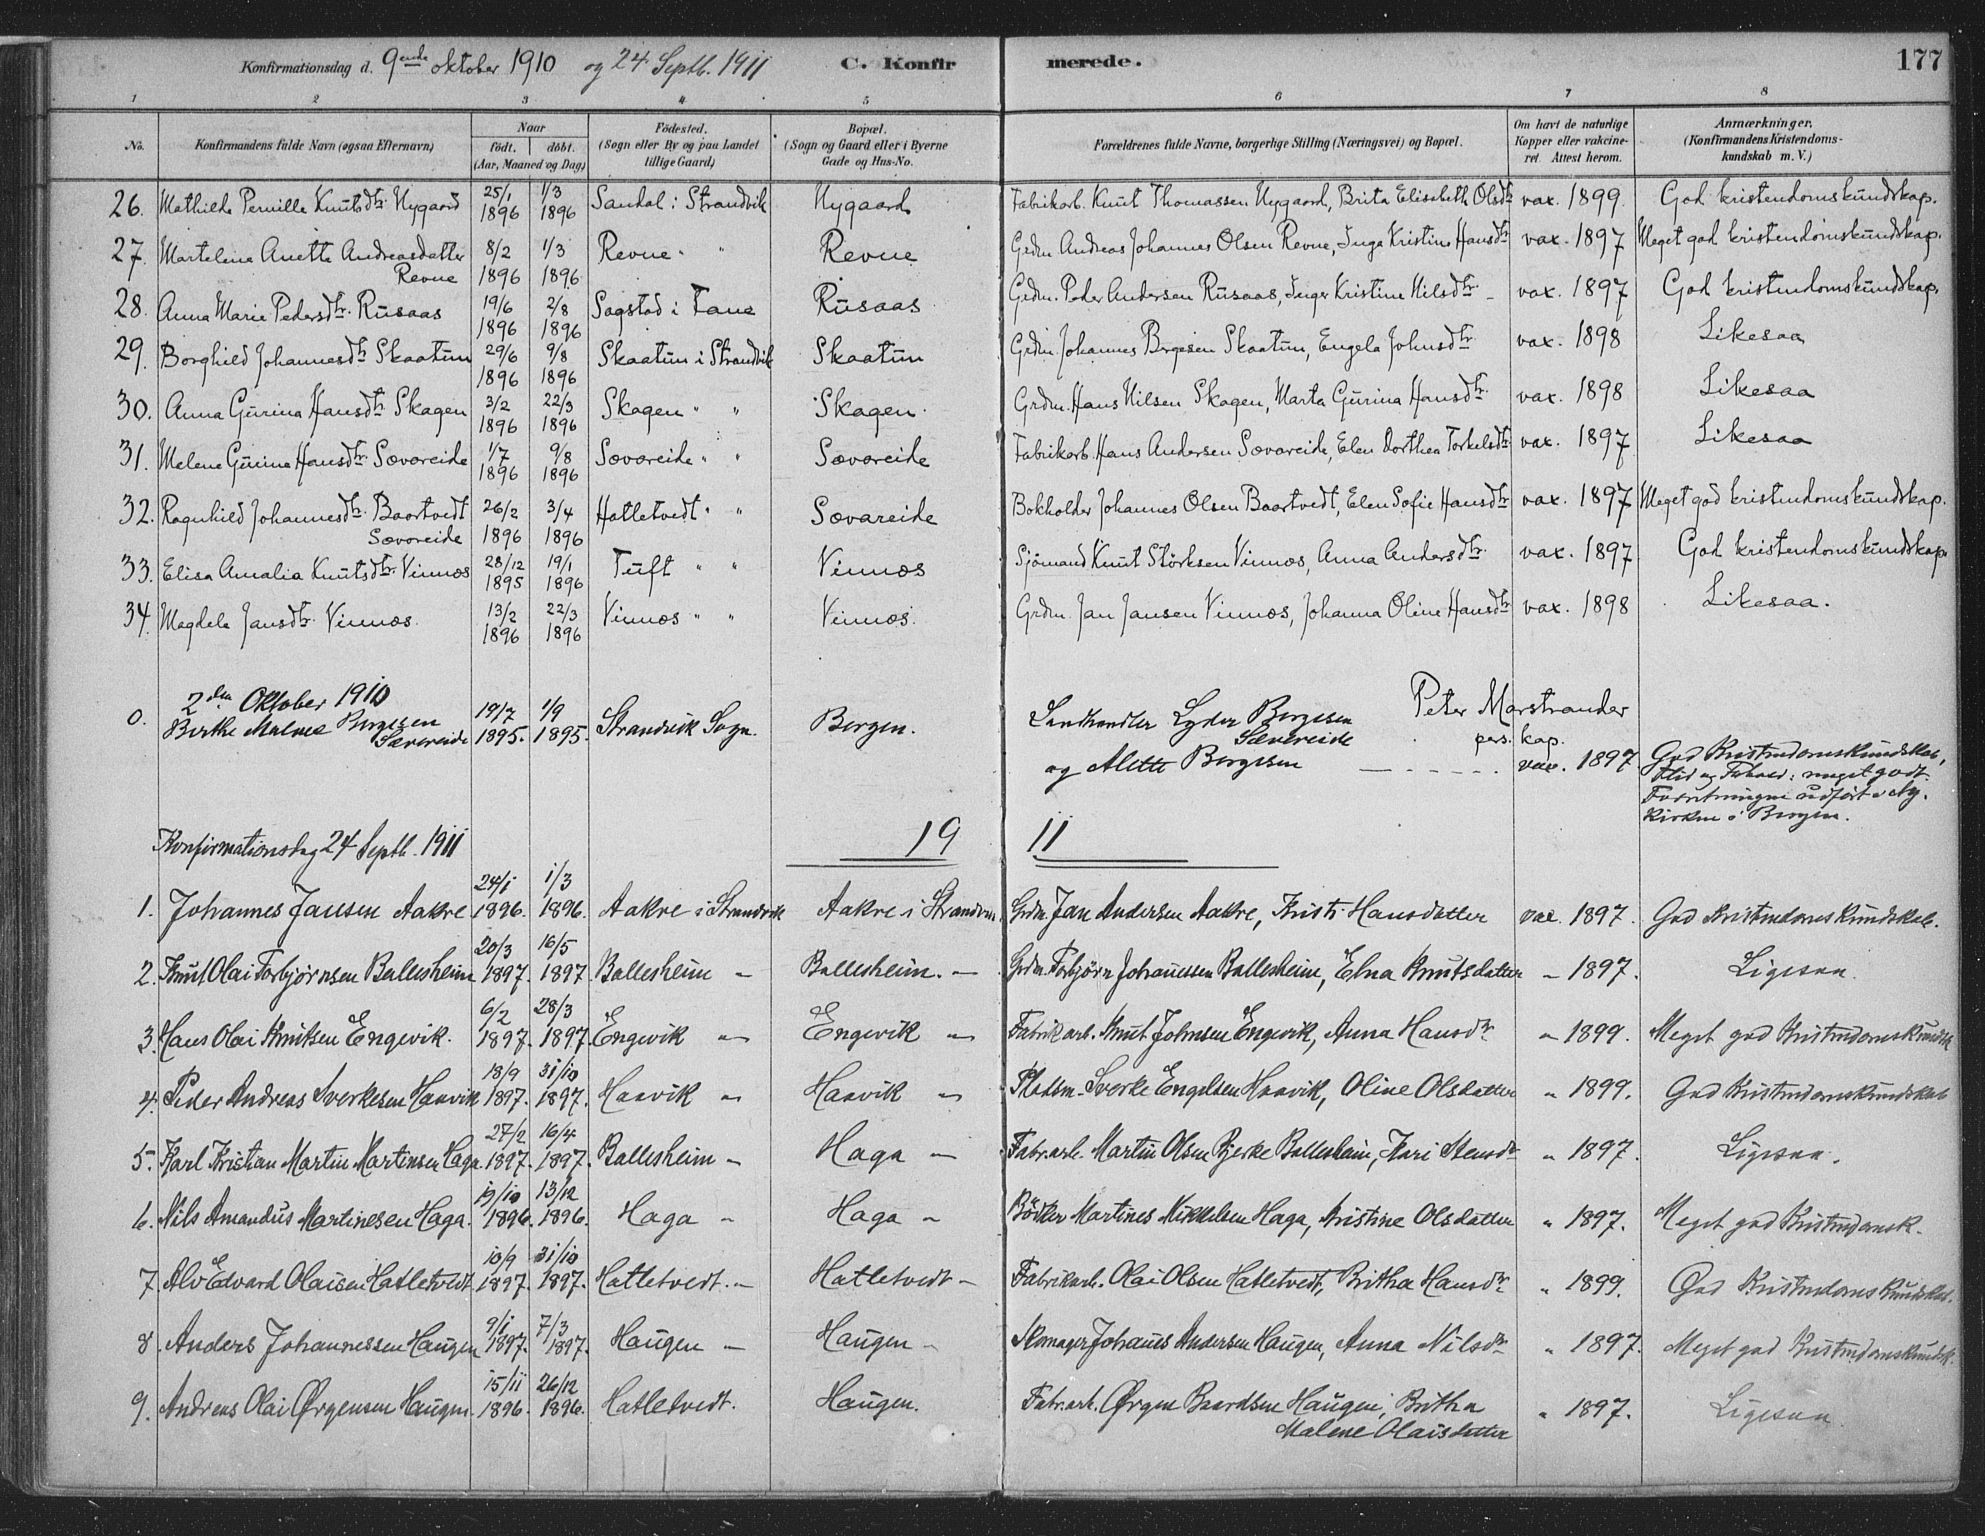 Konfirmationsdag d. 9ende oktober 1910 og 24 Septb. 1911 C. Konfirmerede. 177
1 2 3 4 5 6 7 8
No. Konfirmandens fulde Navn (ogsaa Efternavn) Naar født. døbt. (Aar, Maaned og Dag) Fødested. (Sogn eller By og paa Landet tillige Gaard) Bopæl. (Sogn og Gaard eller i Byerne Gade og Hus-No. Forældrenes fulde Navne, borgerlige Stilling (Næringsvei) og Bopæl. Om havt de naturlige Kopper eller vakcineret. Attest herom. Anmærkninger. (Konfirmandens Kristendomskundskab m. V.)
26. Mathilde Pernille Knutsdtr. Nygaard 25/1 1896 1/3 1896 Sandal i Strandvik Nygaard Fabrikarb. Knut Thomassen Nygaard, Brita Elisabeth Olsdtr vax. 1899. God kristendomskundskap.
27. Martelene Anette Andreasdatter Revne 8/2 1896 1/3 1896 Revne " " Revne Grdm. Andreas Johannes Olsen Revne, Inga Kristine Hansdtr vax. 1897 Meget god kristendomskundskap.
28. Anna Marie Pedersdtr. Rusaas 19/6 1896 2/8 1896 Sagstad i Fane Rusaas Grdm. Peder Andersen Rusaas, Inger Kristine Nilsdtr. vax. 1897 God kristendomskundskap.
29. Borghild Johannesdtr Skaatun 29/6 1896 9/8 1896 Skaatun i Strandvik Skaatun Grdm. Johannes Bergesen Skaatun, Engela Johnsdtr vax. 1898 Likesaa
30. Anna Gurina Hansdtr Skagen 3/2 1896 22/3 1896 Skagen " " Skagen. Grdm. Hans Nilsen Skagen, Marta Gurina Hansdtr. vax. 1898 Likesaa
31. Melene Gurine Hansdtr. Sævareide 1/7 1896 9/8 1896 Sævareide " " Sævareide Fabrikarb. Hans Andersen Sævareide, Elen Dorthea Torkelsdtr vax. 1897 Likesaa
32. Ragnhild Johannesdtr. Baartvedt Sævareide 26/2 1896 3/4 1896 Hatletvedt " " Sævareide Bokholder Johannes Olsen Baartvedt, Elen Sofie Hansdtr vax. 1897 Meget god kristendomskundskap.
33. Elisa Amalia Knutsdtr. Vinnes 28/12 1895 19/1 1896 Tuft " " Vinnes Sjømand Knut Størksen Vinnes, Anna Andersdtr. vax. 1897 God kristendomskundskap
34. Magdela Jansdtr. Vinnes. 13/2 1896 22/3 1896 Vinnes " " Vinnes. Grdm. Jan Jansen Vinnes, Johanna Oline Hansdtr vax. 1898 Likesaa.
2den Oktober 1910 Peter Marstrander
pers. kap.
0. Berthe Malene Bergesen Sævereide 19/7 1895. 1/9 1895. Strandvik Sogn. Bergen. Landhandler Lyder Bergesen Sævereide
og Alette Bergesen vax. 1897 God Kristendomskundskab,
Flid og Forhold: meget godt.
Forretningen udført i Ny.
kirken i Bergen.
Konfirmationsdag 24 Septb. 1911 19 11
1. Johannes Jansen Aakre 24/1 1896. 1/3 1896. Aakre i Strandvik Aakre i Strandvik Grdm. Jan Andersen Aakre, Kristi Hansdatter vac. 1897. God Kristendomskundskab.
2. Knut Olai Torbjørnsen Ballesheim 20/3 1897. 16/5 1897 Ballesheim " Ballesheim. " Grdm. Torbjørn Johannessen Ballesheim, Elna Knutsdatter " 1897. Ligesaa.
3. Hans Olai Knutsen Engevik. 6/2 1897. 28/3 1897. Engevik " Engevik " Fabrikarb. Knut Johnsen Engevik, Anna Hansdtr " 1899. Meget god Kristendomskundsk
4. Peder Andreas Sverkesen Haavik 18/9 1897. 31/10 1897. Haavik " Haavik " Pladsm. Sverke Engelsen Haavik, Oline Olsdatter " 1899. God Kristendomskundskab
5. Karl Kristian Martin Martinsen Haga 27/2 1897. 16/4 1897. Ballesheim " Haga " Fabr.arb. Martin Olsen Bjerke Ballesheim, Kari Stensdtr " 1897. Ligesaa.
6. Nils Amandus Martinesen Haga. 19/10 1896. 13/12 1896. Haga " Haga " Bödker Martines Mikkelsen Haga, Kristine Olsdatter " 1897. Meget god Kristendomsk.
7. Alv Edvard Olaisen Hatletvedt 10/9 1897. 31/10 1897. Hatletvedt. " Hatletvedt " Fabrikarb. Olai Olsen Hatletvedt, Britha Hansdtr " 1899. God Kristendomskundskab.
8. Anders Johannessen Haugen 9/1 1897. 7/3 1897. Haugen " Haugen " Skomager Johannes Andersen Haugen, Anna Nilsdtr " 1897. Meget god Kristendomskundsk.
9. Andreas Olai Ørgensen Haugen 15/11 1896. 26/12 1896. Hatletvedt. Haugen. Fabr.arb. Ørgen Baardsen Haugen, Britha Malene Olaisdatter " 1897. Ligesaa.